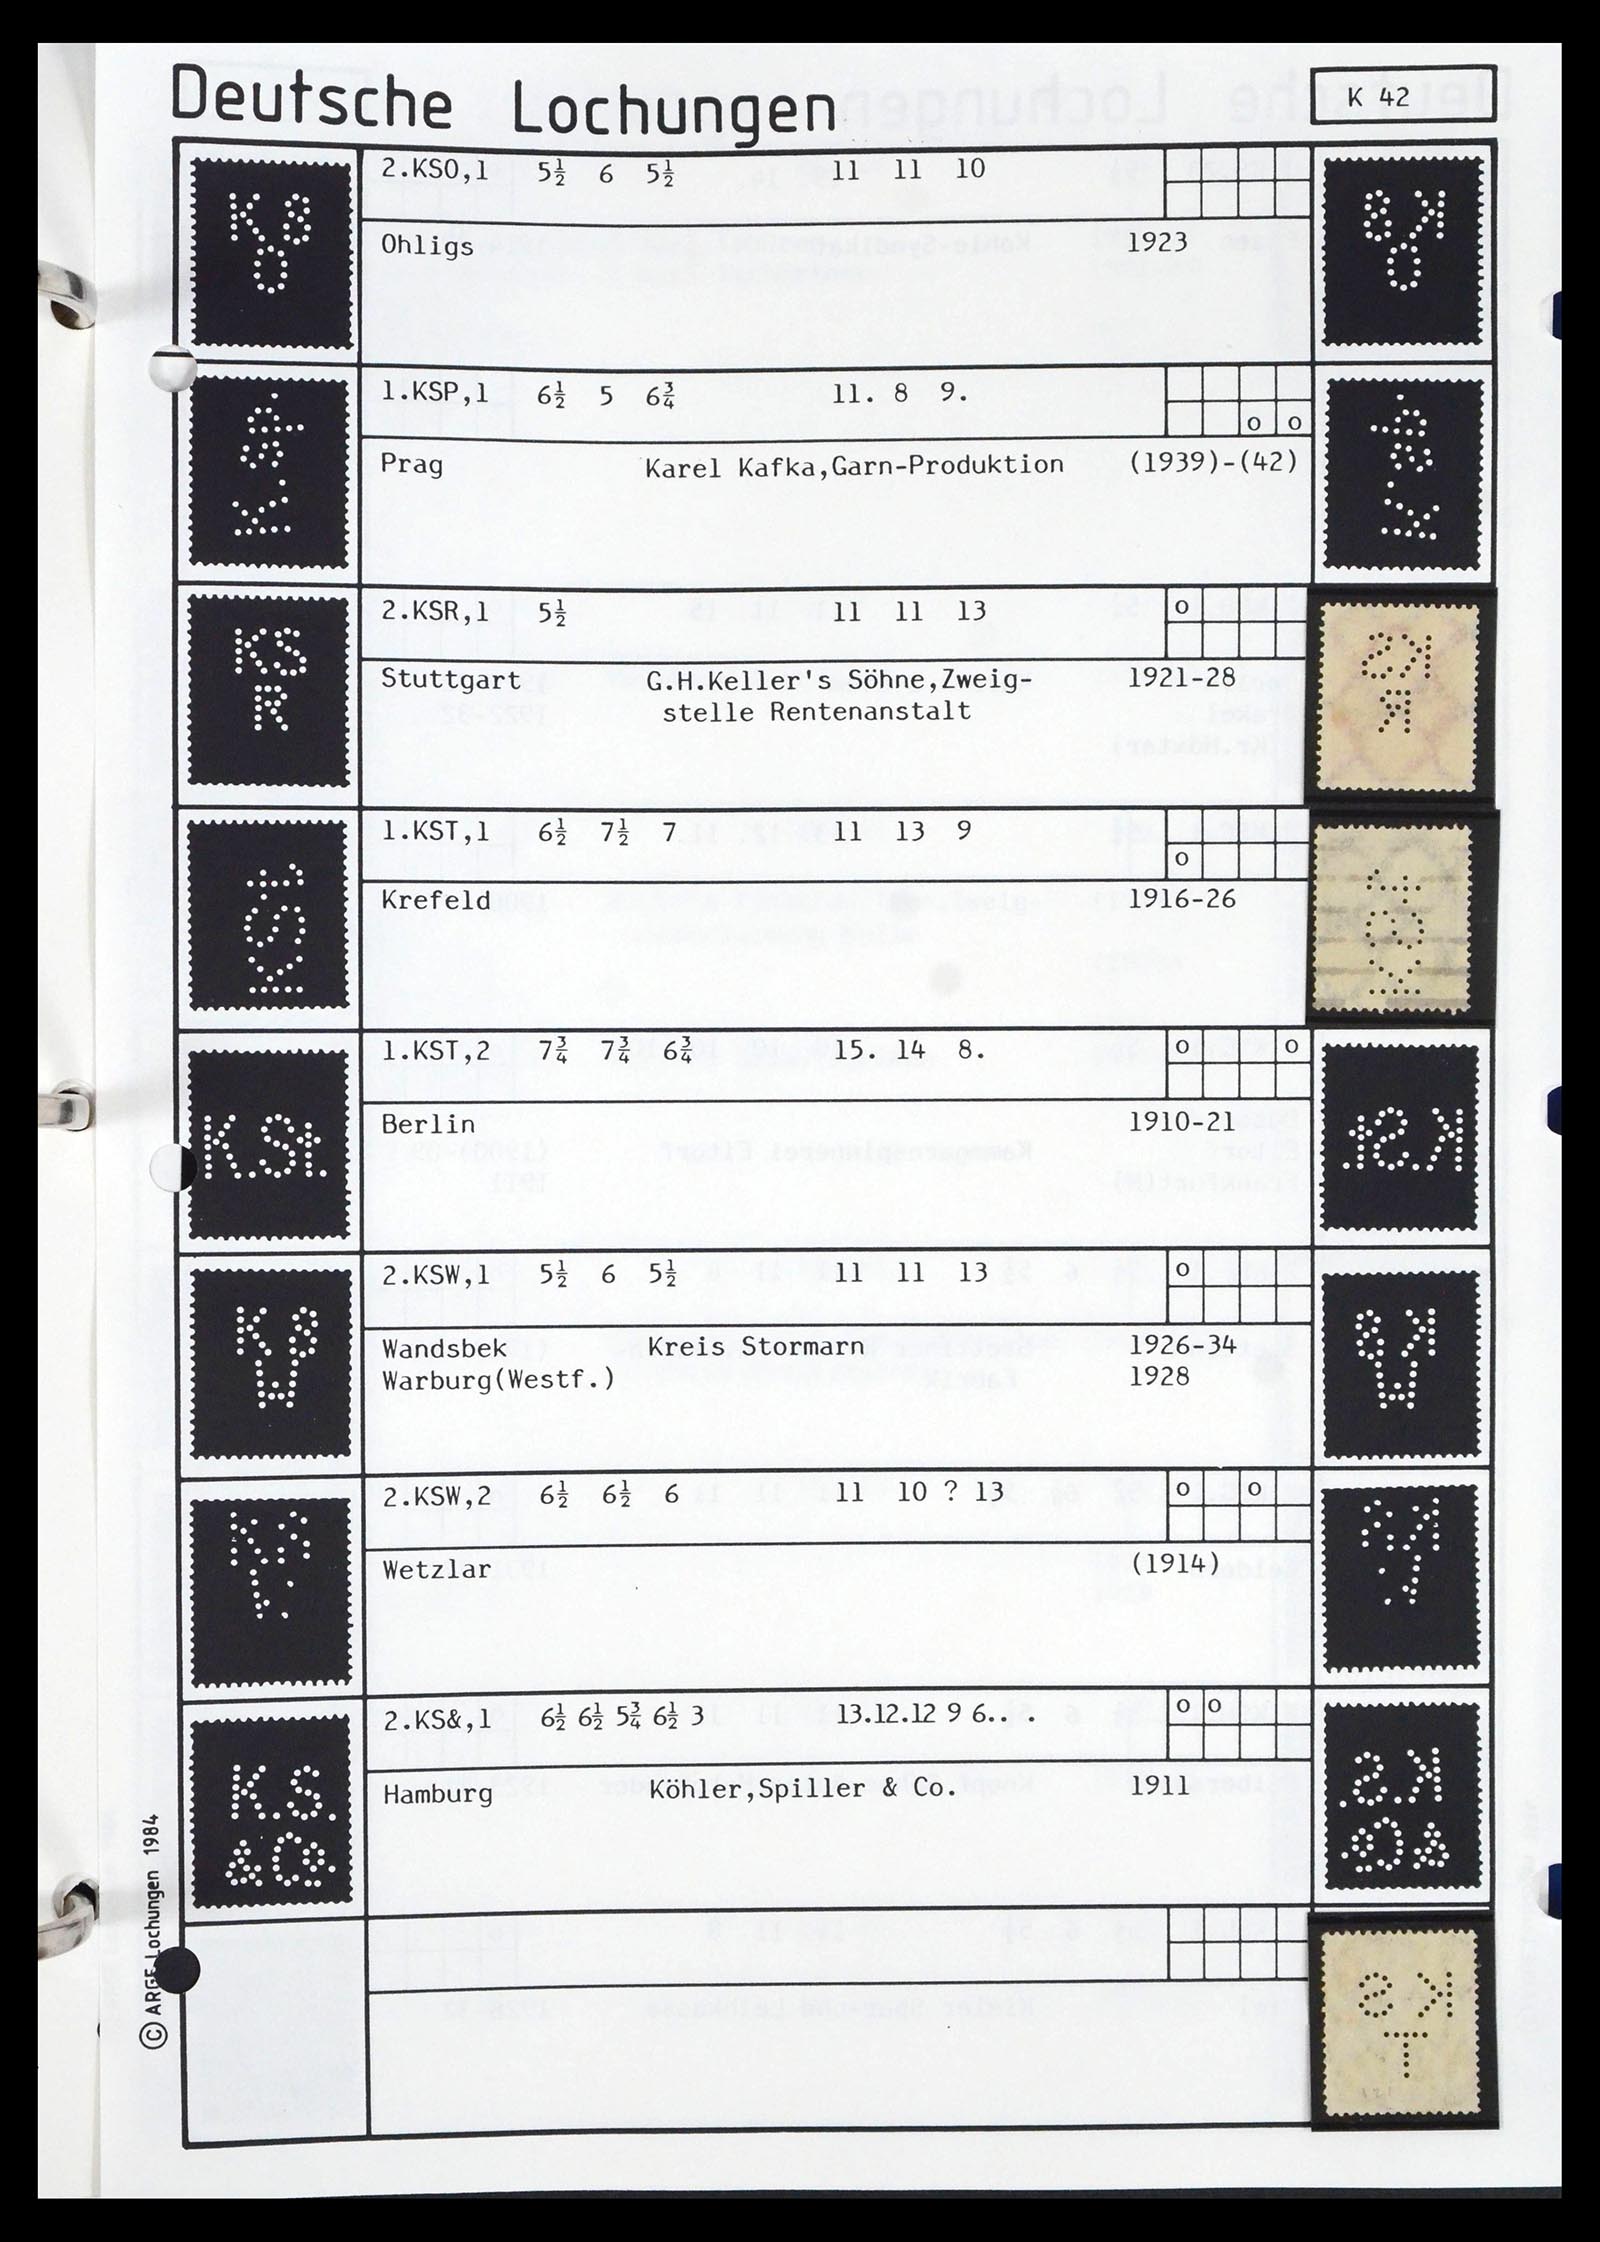 Deutsche Lochungen
K 42
KS
O
2.KSO,1 5½ 6 5½ 11 11 10
Ohligs 1923
K.Sp.
1.KSP,1 6½ 5 6¾ 11. 8 9.
o o
Prag Karel Kafka,Garn-Produktion (1939)-(42)
KS
R
2.KSR,1 5½ 11 11 13 o
Stuttgart G.H.Keller's Söhne,Zweig- 1921-28
stelle Rentenanstalt
KSt
1.KST,1 6½ 7½ 7 11 13 9
o
Krefeld 1916-26
K.St.
1.KST,2 7¾ 7¾ 6¾ 15. 14 8. o o
Berlin 1910-21
KS
W
2.KSW,1 5½ 6 5½ 11 11 13 o
Wandsbek Kreis Stormarn 1926-34
Warburg(Westf.) 1928
2.KSW,2 6½ 6½ 6 11 10 ? 13 o o
Wetzlar (1914)
K.S.
&Co.
2.KS&,1 6½ 6½ 5¾ 6½ 3 13.12.12 9 6.. . o o
Hamburg Köhler,Spiller & Co. 1911
KS
T
© ARGE Lochungen 1984